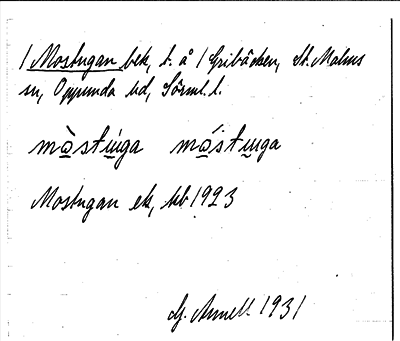 / Mostugan bek, t. å / Gribäcken, St. Malms
sn, Oppunda hd, Sörml. l.
mòstúga móstuga
Mostugan ek, kb 1923
G. Annell 1931